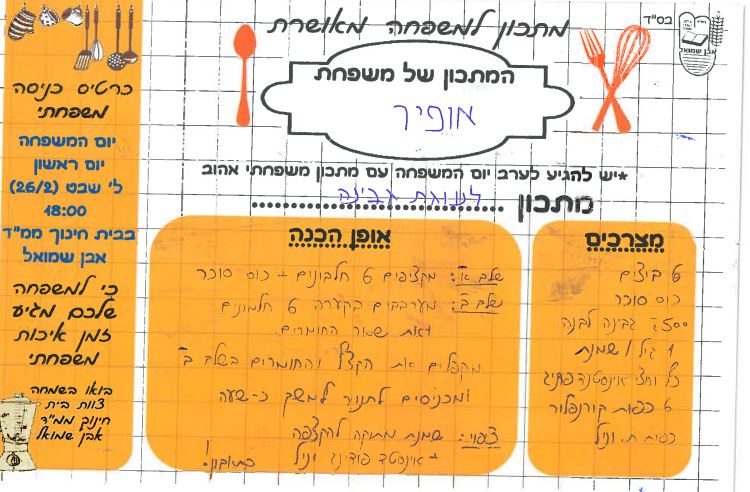 בס"ד
אבן שמואל
מתכון למשפחה מאושרת
המתכון של משפחת
אופיר
*יש להגיע לערב יום המשפחה עם מתכון משפחתי אהוב
מתכון לעוגת גבינה
מצרכים
6 ביצים
כוס סוכר
500 גבינה לבנה
1 גיל / שמנת
וחצי אינסטנט פודינג
6 כפות קורנפלור
כפית ת. וניל
אופן הכנה
שלב א: מקציפים 6 חלבונים + כוס סוכר
שלב ב: מערבבים בקערה 6 חלמונים
ואת שאר החומרים.
מקפלים את הקצף והחומרים בשלב ב
ומכניסים לתנור למשך כ-שעה
ציפוי: שמנת מתוקה להקצפה
+ אינסטנט פודינג וניל
כרטיס כניסה
משפחתי
יום המשפחה
יום ראשון
ל' שבט (26/2)
18:00
בבית חינוך ממ"ד
אבן שמואל
כי למשפחה
שלכם מגיע
זמן איכות
משפחתי
בואו בשמחה
צוות בית
חינוק ממ"ד
אבן שמואל